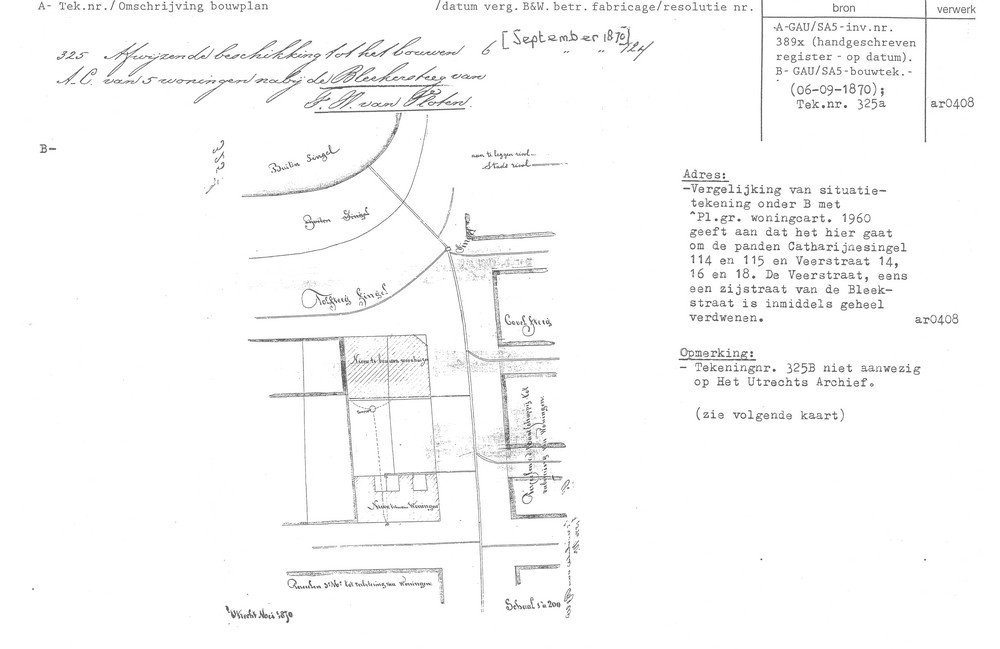 A- Tek.nr./Omschrijving bouwplan /datum verg. B&W. betr. fabricage/resolutie nr. bron verwerk
325 Afwijzende beschikking tot het bouwen 6 [September 1870] „ „ /24
A.C. van 5 woningen nabij de Bleekersteeg van
F. W. van Ploten.
-A-GAU/SA5-inv.nr.
389x (handgeschreven
register - op datum).
B- GAU/SA5-bouwtek.-
(06-09-1870);
Tek.nr. 325a ar0408
B-
Buiten Singel
aan te leggen riool
Stads riool
Buiten Singel
Singel
Tolsteeg Singel
Nieuw te bouwen woningen
Nieuw te bouwen Woningen
Utrecht Mei 1870
Schaal 1 à 200
Adres:
-Vergelijking van situatie-
tekening onder B met
^Pl.gr. woningcart. 1960
geeft aan dat het hier gaat
om de panden Catharijnesingel
114 en 115 en Veerstraat 14,
16 en 18. De Veerstraat, eens
een zijstraat van de Bleek-
straat is inmiddels geheel
verdwenen. ar0408
Opmerking:
- Tekeningnr. 325B niet aanwezig
op Het Utrechts Archief.
(zie volgende kaart)